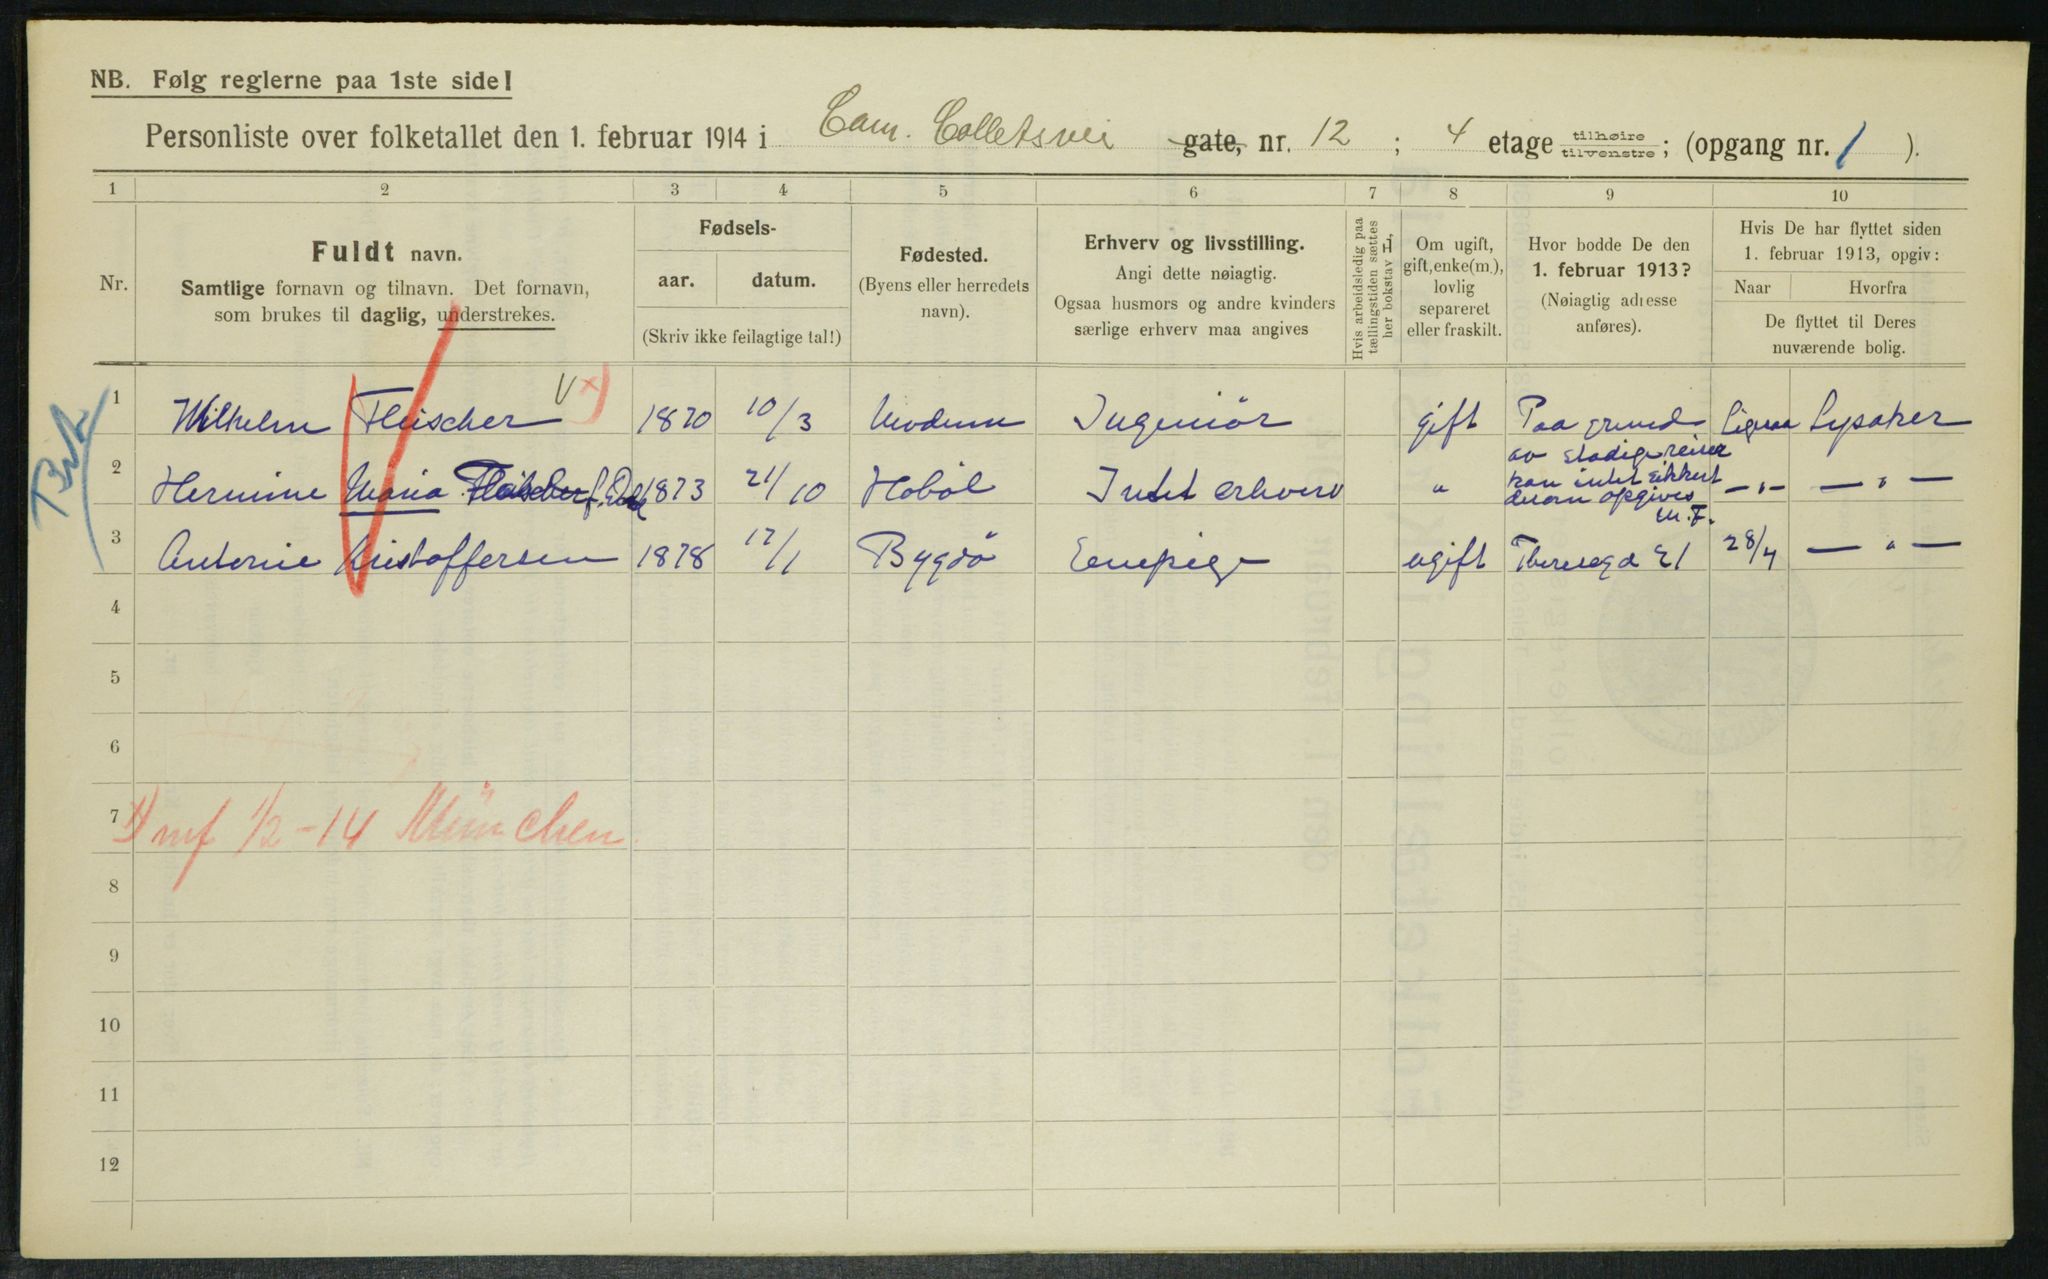 NB. Følg reglerne paa 1ste side!
Personliste over folketallet den 1. februar 1914 i Cam. Colletsvei gate, nr. 12 ; 4 etage tilhøire tilvenstre; (opgang nr. 1 ).
1 2 3 4 5 6 7 8 9 10
Nr.
Fuldt navn.
Samtlige fornavn og tilnavn. Det fornavn,
som brukes til daglig, understrekes.
Fødsels-
aar. datum.
(Skriv ikke feilagtige tal!)
Fødested.
(Byens eller herredets
navn).
Erhverv og livsstilling.
Angi dette nøiagtig.
Ogsaa husmors og andre kvinders
særlige erhverv maa angives
Hvis arbeidsledig paa
tællingstiden sættes
her bokstav L,
Om ugift,
gift, enke(m.),
lovlig
separeret
eller fraskilt.
Hvor bodde De den
1. februar 1913?
(Nøiagtig adresse
anføres).
Hvis De har flyttet siden
1. februar 1913, opgiv:
Naar Hvorfra
De flyttet til Deres
nuværende bolig.
1 Wilhelm Fleischer 1870 10/3 Modum Ingeniör gift Paa grund Lysaker
av stadige reiser
2 Hermine Maria Fleischer f. 1873 21/10 Hoböl Intet erhverv " kan intet sikkert — " — — " —
derom opgives
W. F.
3 Antonie Kristoffersen 1878 17/1 Bygdö Enepige ugift Theresegd 21 28/4 — " —
4
5
6
7
1) mf 1/2-14 München
8
9
10
11
12